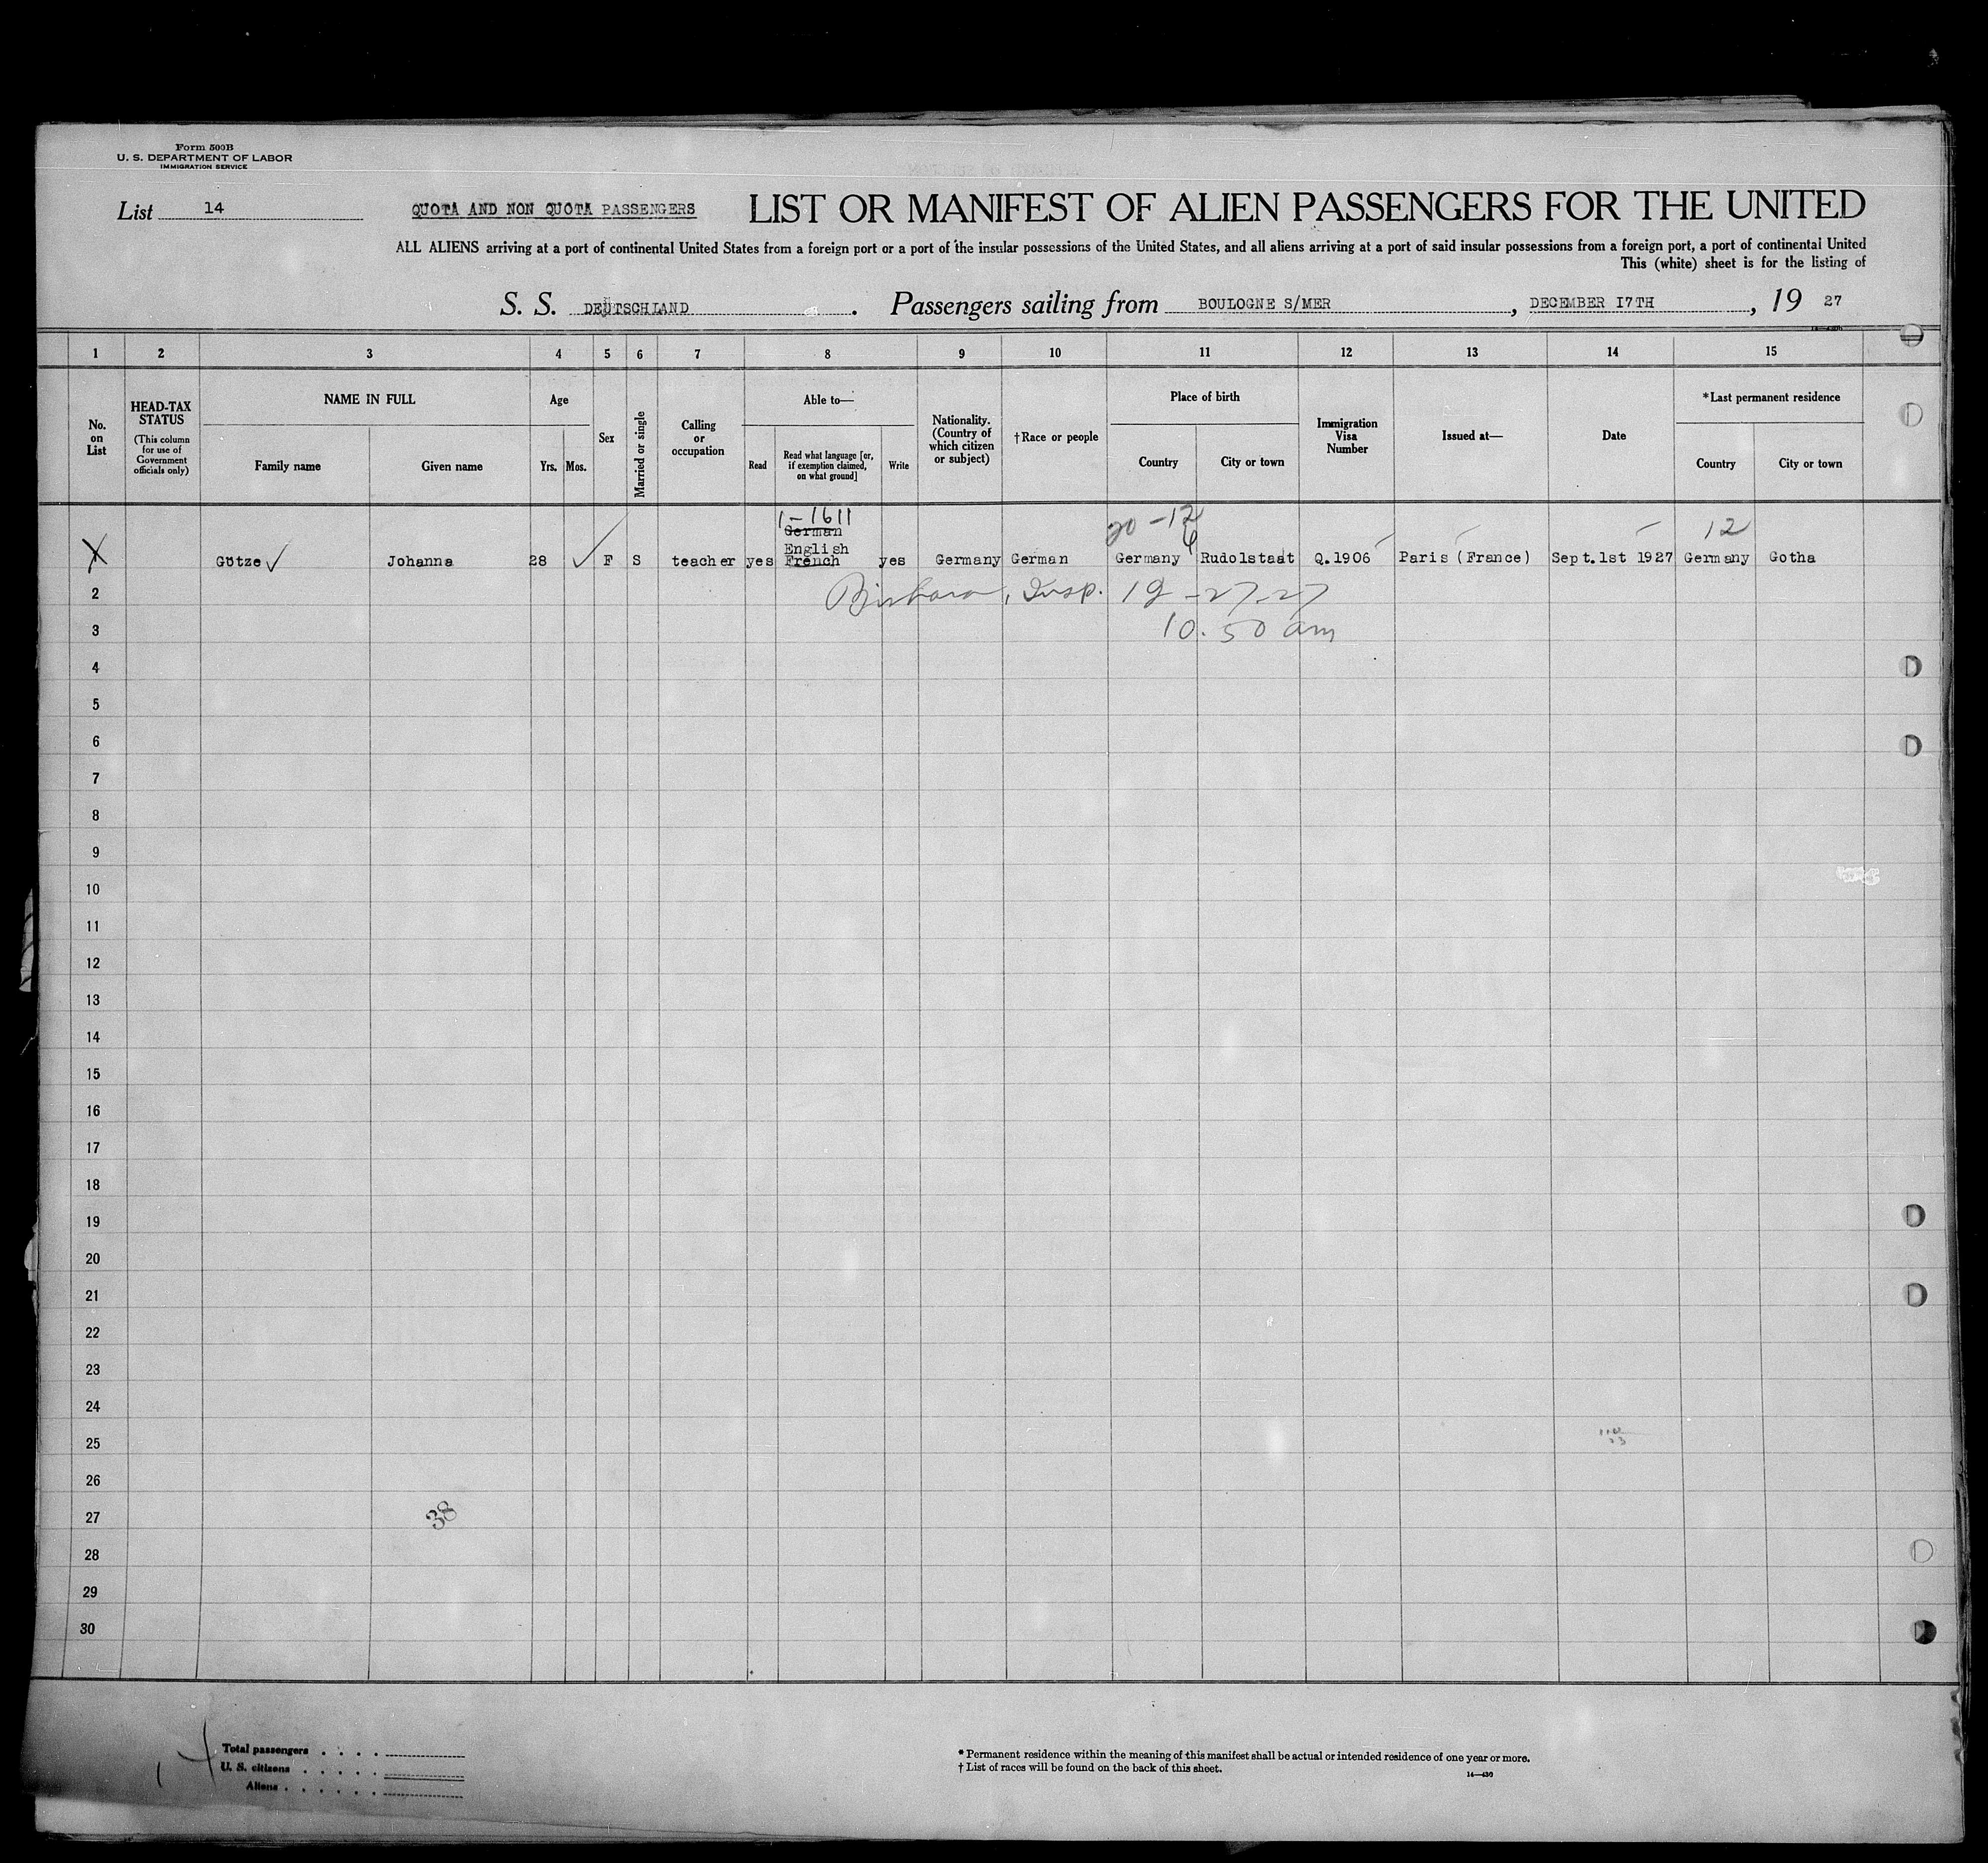 Form 500B
U. S. DEPARTMENT OF LABOR
IMMIGRATION SERVICE
List 14
QUOTA AND NON QUOTA PASSENGERS
LIST OR MANIFEST OF ALIEN PASSENGERS FOR THE UNITED
ALL ALIENS arriving at a port of continental United States from a foreign port or a port of the insular possessions of the United States, and all aliens arriving at a port of said insular possessions from a foreign port, a port of continental United
This (white) sheet is for the listing of
S. S. DEUTSCHLAND. Passengers sailing from BOULOGNE S/MER, DECEMBER I7TH, 19 27
1 2 3 4 5 6 7 8 9 10 11 12 13 14 15
No. on List
HEAD-TAX STATUS
(This column for use of Government officials only)
NAME IN FULL
Family name
Given name
Age
Yrs.
Mos.
Sex
Married or single
Calling or occupation
Able to—
Read
Read what language [or, if exemption claimed, on what ground]
Write
Nationality. (Country of which citizen or subject)
†Race or people
Place of birth
Country
City or town
Immigration Visa Number
Issued at—
Date
*Last permanent residence
Country
City or town
1-1611
20-12
12
German
English
Götze Johanna 28 F S teacher yes French yes Germany German Germany Rudolstaat Q.1906 Paris (France) Sept.1st 1927 Germany Gotha
2 Insp. 12-27-27
3 10.50 am
4
5
6
7
8
9
10
11
12
13
14
15
16
17
18
19
20
21
22
23
24
25
26
27
38
28
29
30
Total passengers
U. S. citizens
Aliens
* Permanent residence within the meaning of this manifest shall be actual or intended residence of one year or more.
† List of races will be found on the back of this sheet.
14—430